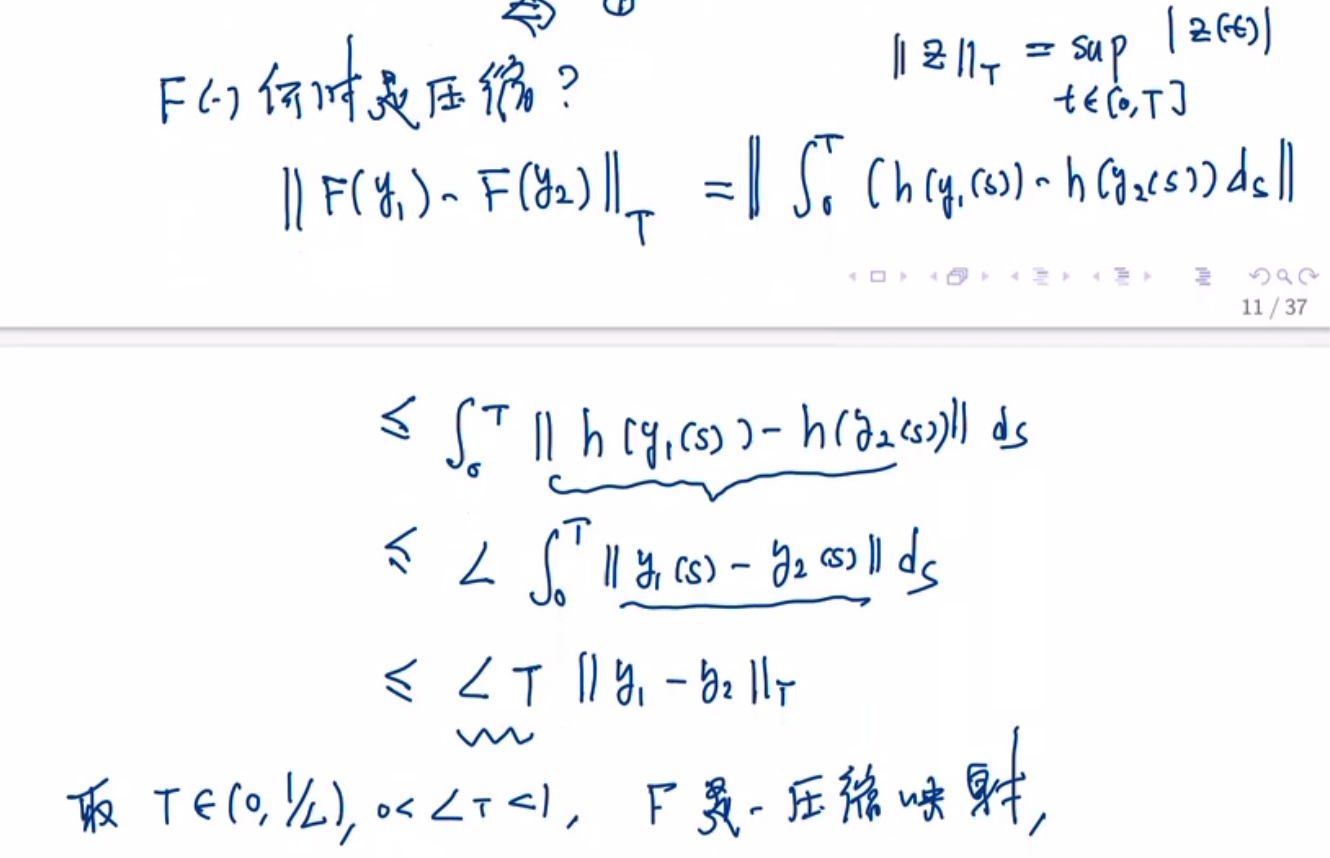 ⇔ ①
F(·) 何时是压缩?
‖z‖_T = sup_{t∈[0,T]} |z(t)|
‖F(y₁) - F(y₂)‖_T = ‖∫₀ᵀ (h(y₁(s)) - h(y₂(s)) ds‖
11 / 37
≤ ∫₀ᵀ ‖h(y₁(s)) - h(y₂(s))‖ ds
≤ L ∫₀ᵀ ‖y₁(s) - y₂(s)‖ ds
≤ L T ‖y₁ - y₂‖_T
取 T∈(0, 1/L), 0< L T <1, F 是一压缩映射,